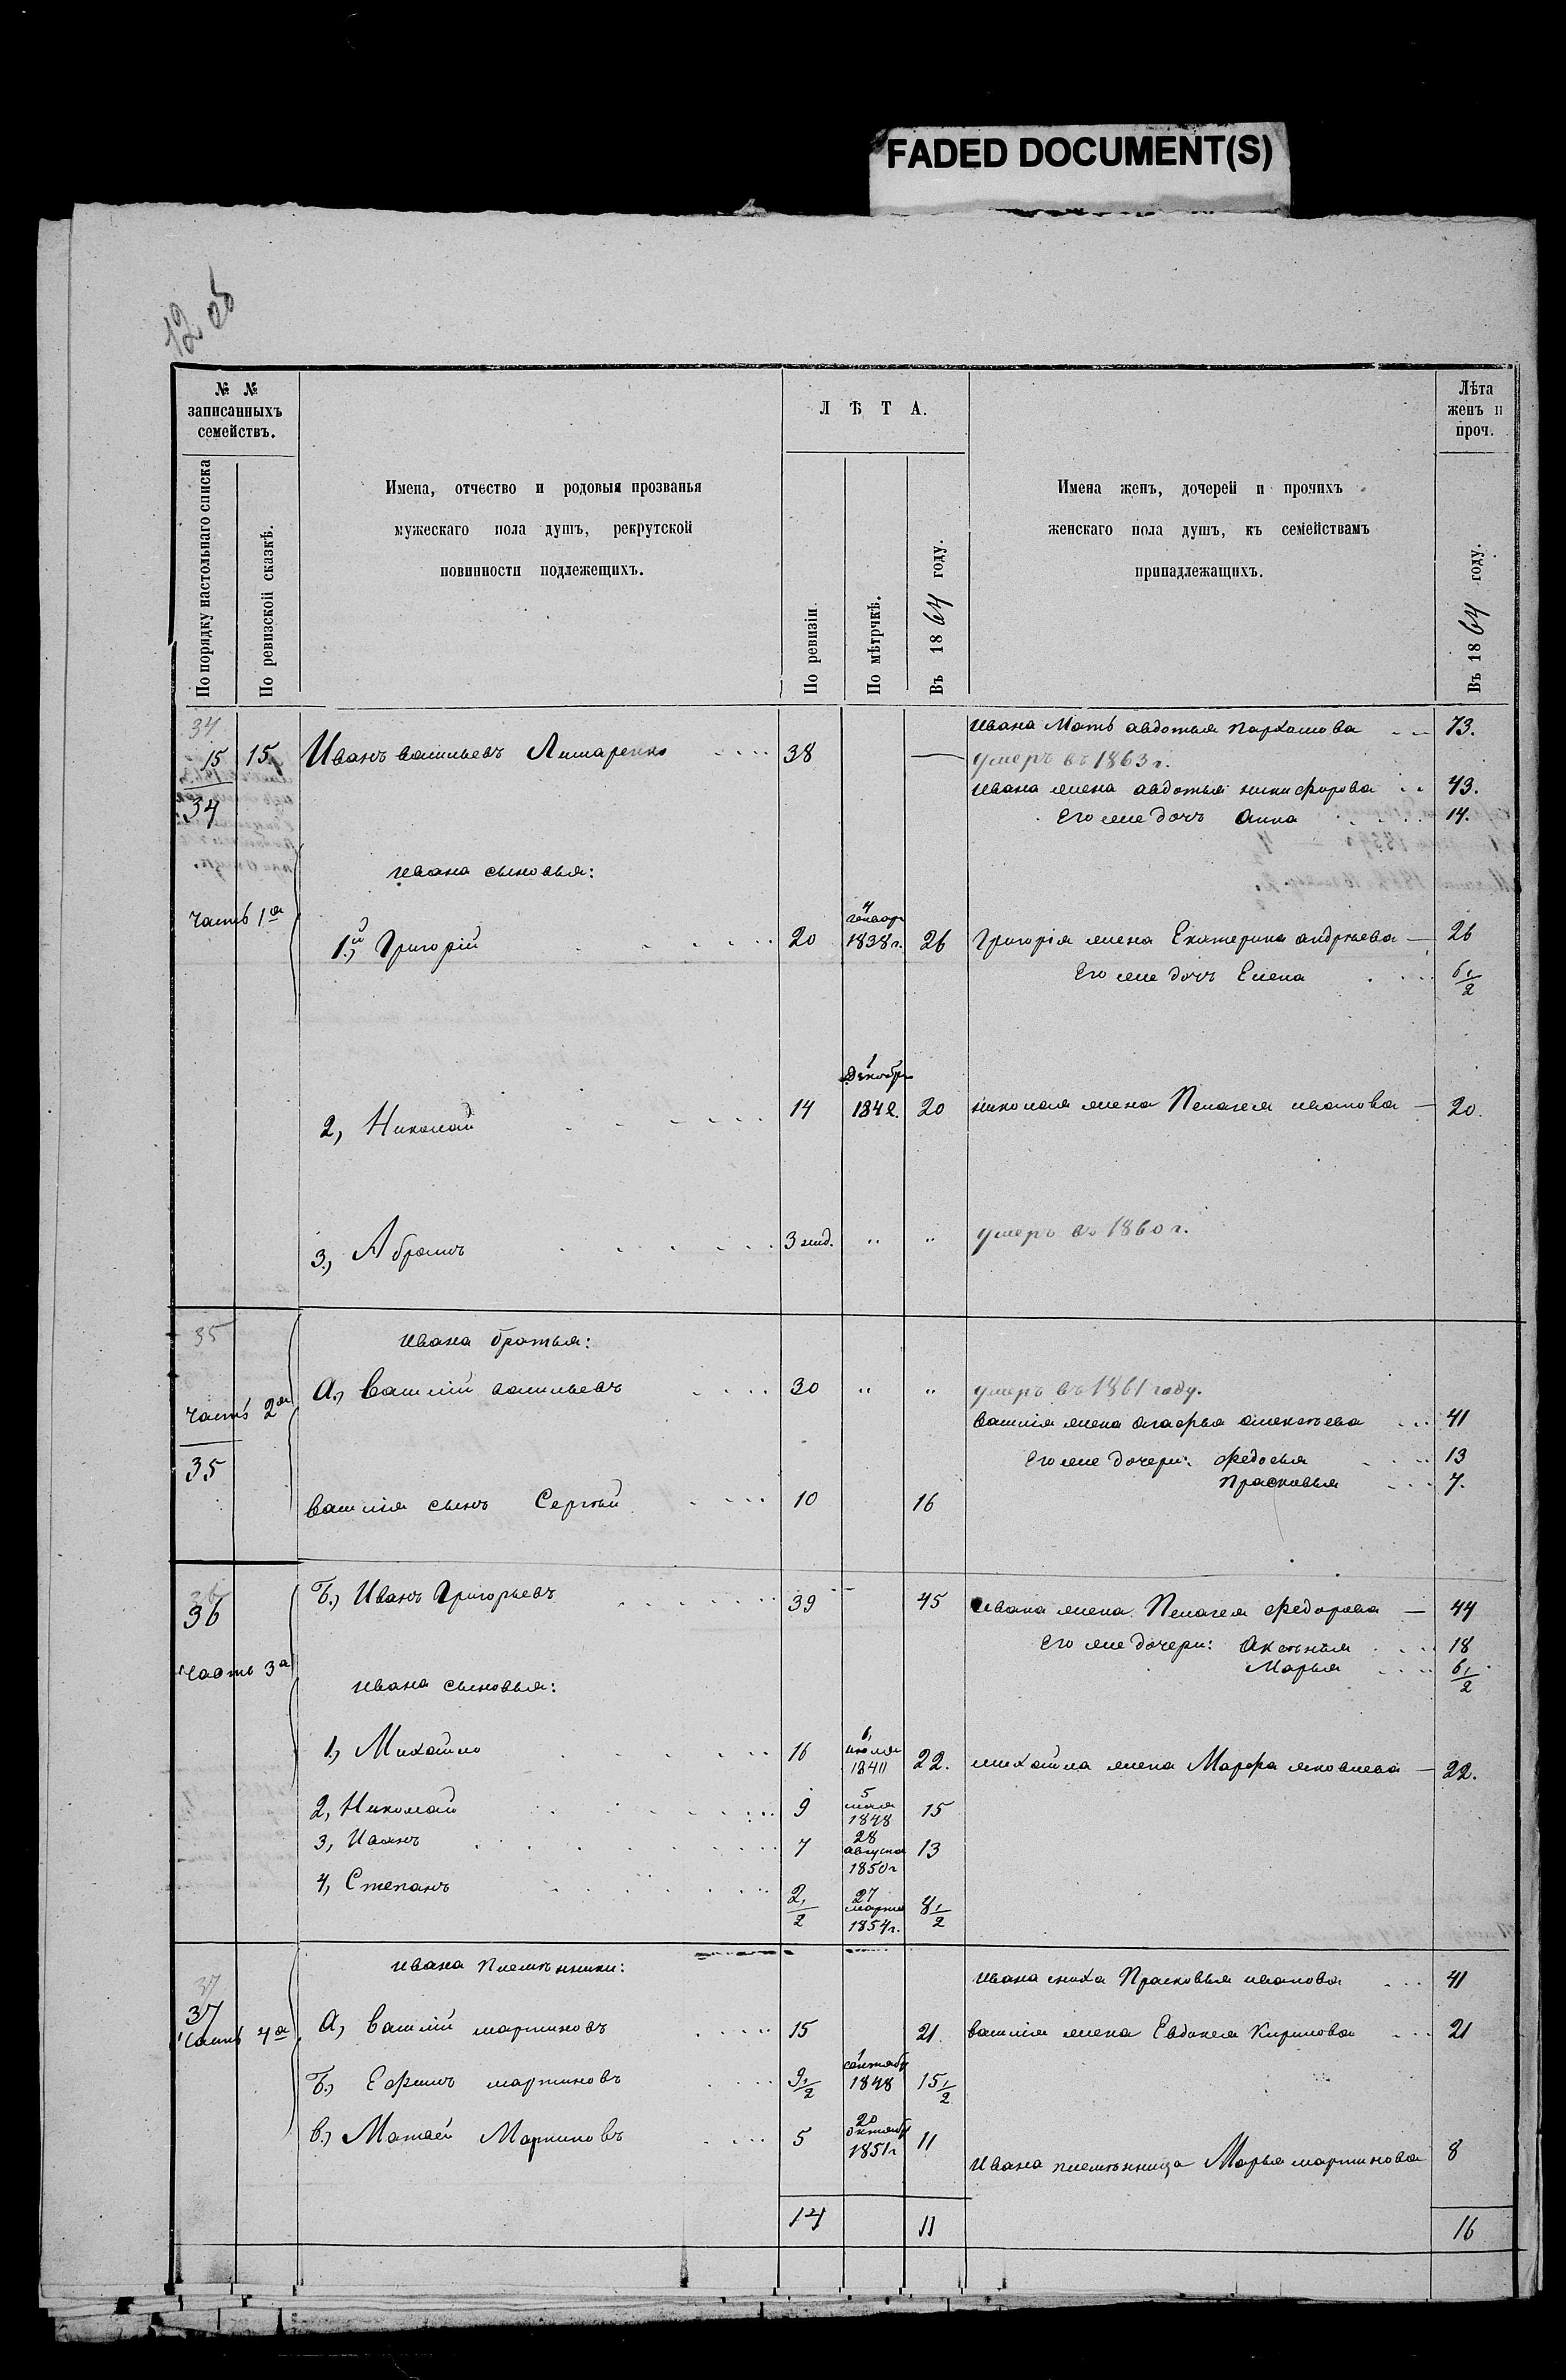 FADED DOCUMENT(S)
12 об
№ №
записанныхъ
семействъ.
По порядку настольнаго списка
По ревизской сказкѣ.
Имена, отчество и родовыя прозванья
мужескаго пола душъ, рекрутской
повинности подлежещихъ.
ЛѢТА.
По ревизіи.
По мѣтрчкѣ.
Въ 1864 году.
Имена женъ, дочерей и прочихъ
женскаго пола душъ, къ семействамъ
принадлежащихъ.
Лѣта
женъ и
проч.
Въ 1864 году.
34
Ивана Мать авдотья пархомова 73.
15 15 Иванъ васильевъ Литаренко 38 — умеръ въ 1863 г.
34
ивана жена авдотья никифорова 43.
Его же дочъ Анна 14.
ивана сыновья:
Часть 1я
1й, Григорій 20 4 генвар 1838 г. 26 Григорія жена Екатерина андрѣева — 26
Его же дочъ Елена 6 1/2
2, Николай 14 1 Декабр 1842. 20 николая жена Пелагея иванова — 20.
3, Абрамъ 3 нед. " " умеръ въ 1860 г.
35
ивана братья:
Часть 2я
35
А, василій васильевъ 30 " " умеръ въ 1861 году.
василія жена агафья алексѣева 41
Его же дочери: федосья 13
Прасковья 7.
василія сынъ Сергѣй 10 16
36
36
Часть 3я
Б, Иванъ Григорьевъ 39 45 ивана жена Пелагея федорова — 44
Его же дочери: Аксинья 18
Марья 6 1/2
ивана сыновья:
1, Михайло 16 6 июля 1840 22. михайла жена Марфа яковлева — 22.
2, Николай 9 5 мая 1848 15
3, Иванъ 7 28 августа 1850 г 13
4, Степанъ 2 1/2 27 марта 1854 г. 8 1/2
37
37
Часть 4я
ивана племѣнники:
ивана сниха Прасковья иванова 41
А, василій мартиновъ 15 21. василія жена Евдокея Кирилова 21
Б, Ефимъ мартиновъ 9 1/2 1 сентябр 1848 15 1/2
в, Матвей Мартиновъ 5 20 октябр 1851 г 11
ивана племѣнница Марья мартинова 8
14 11 16